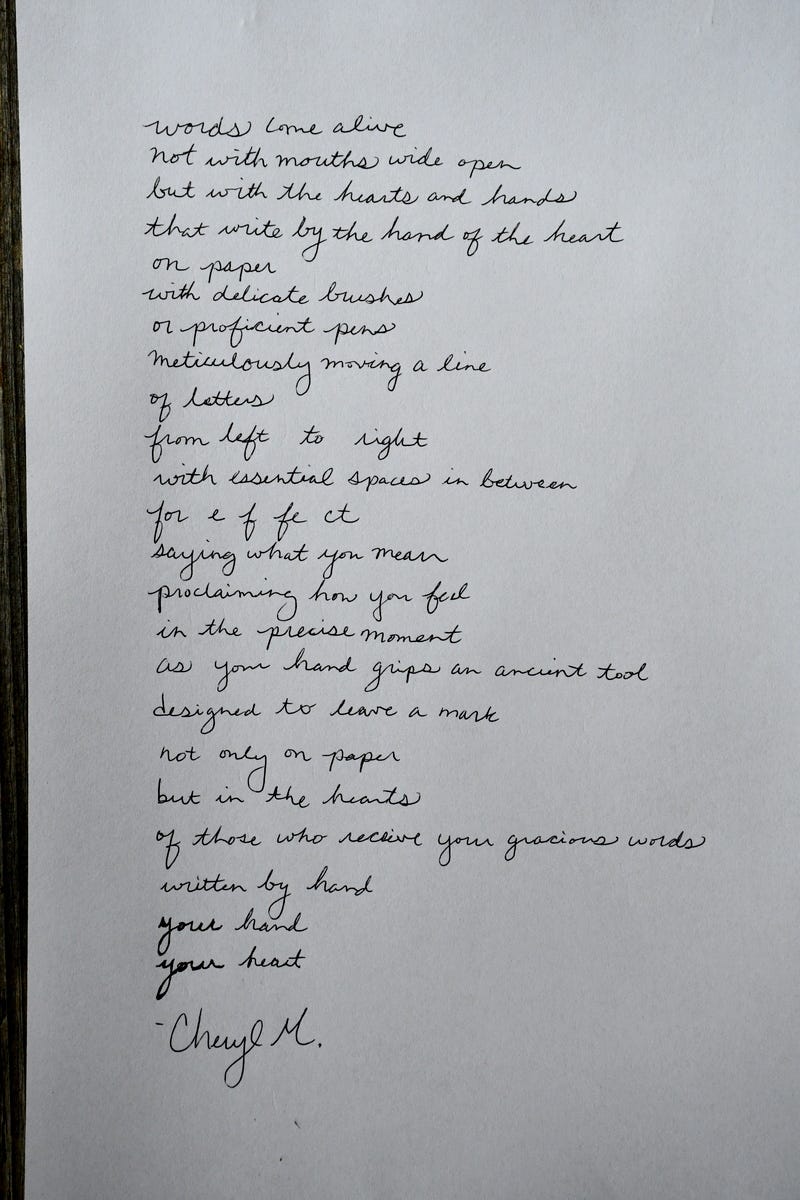 words come alive
not with mouths wide open
but with the hearts and hands
that write by the hand of the heart
on paper
with delicate brushes
or proficient pens
meticulously moving a line
of letters
from left to right
with essential spaces in between
for e f fe ct
saying what you mean
proclaiming how you feel
in the precise moment
as your hand grips an ancient tool
designed to leave a mark
not only on paper
but in the hearts
of those who receive your gracious words
written by hand
your hand
your heart
-Cheryl M.